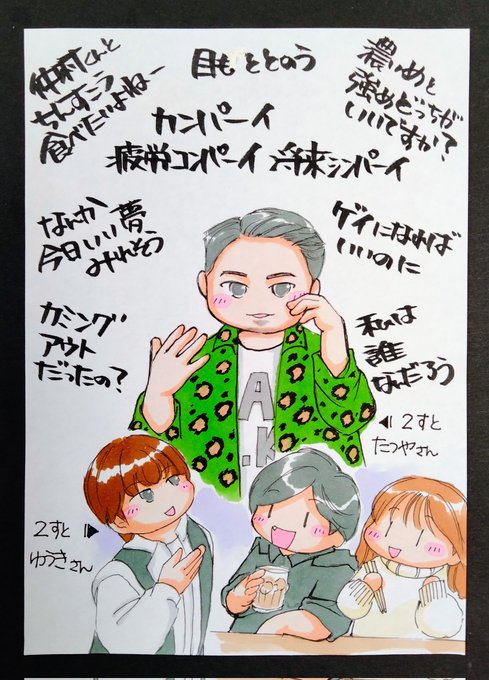 仲村くんと
ちんすこう
食べたいよねー
目も ととのう
濃いめと
強めどっちが
いいですか?
カンパーイ
疲労コンパーイ 将来シンパーイ
なんか
今日いい夢、
みれそう
ゲイになれば
いいのに
カミング
アウト
だったの?
私は
誰
なんだろう
A
.K
2すと
たつやさん
2すと
ゆうきさん